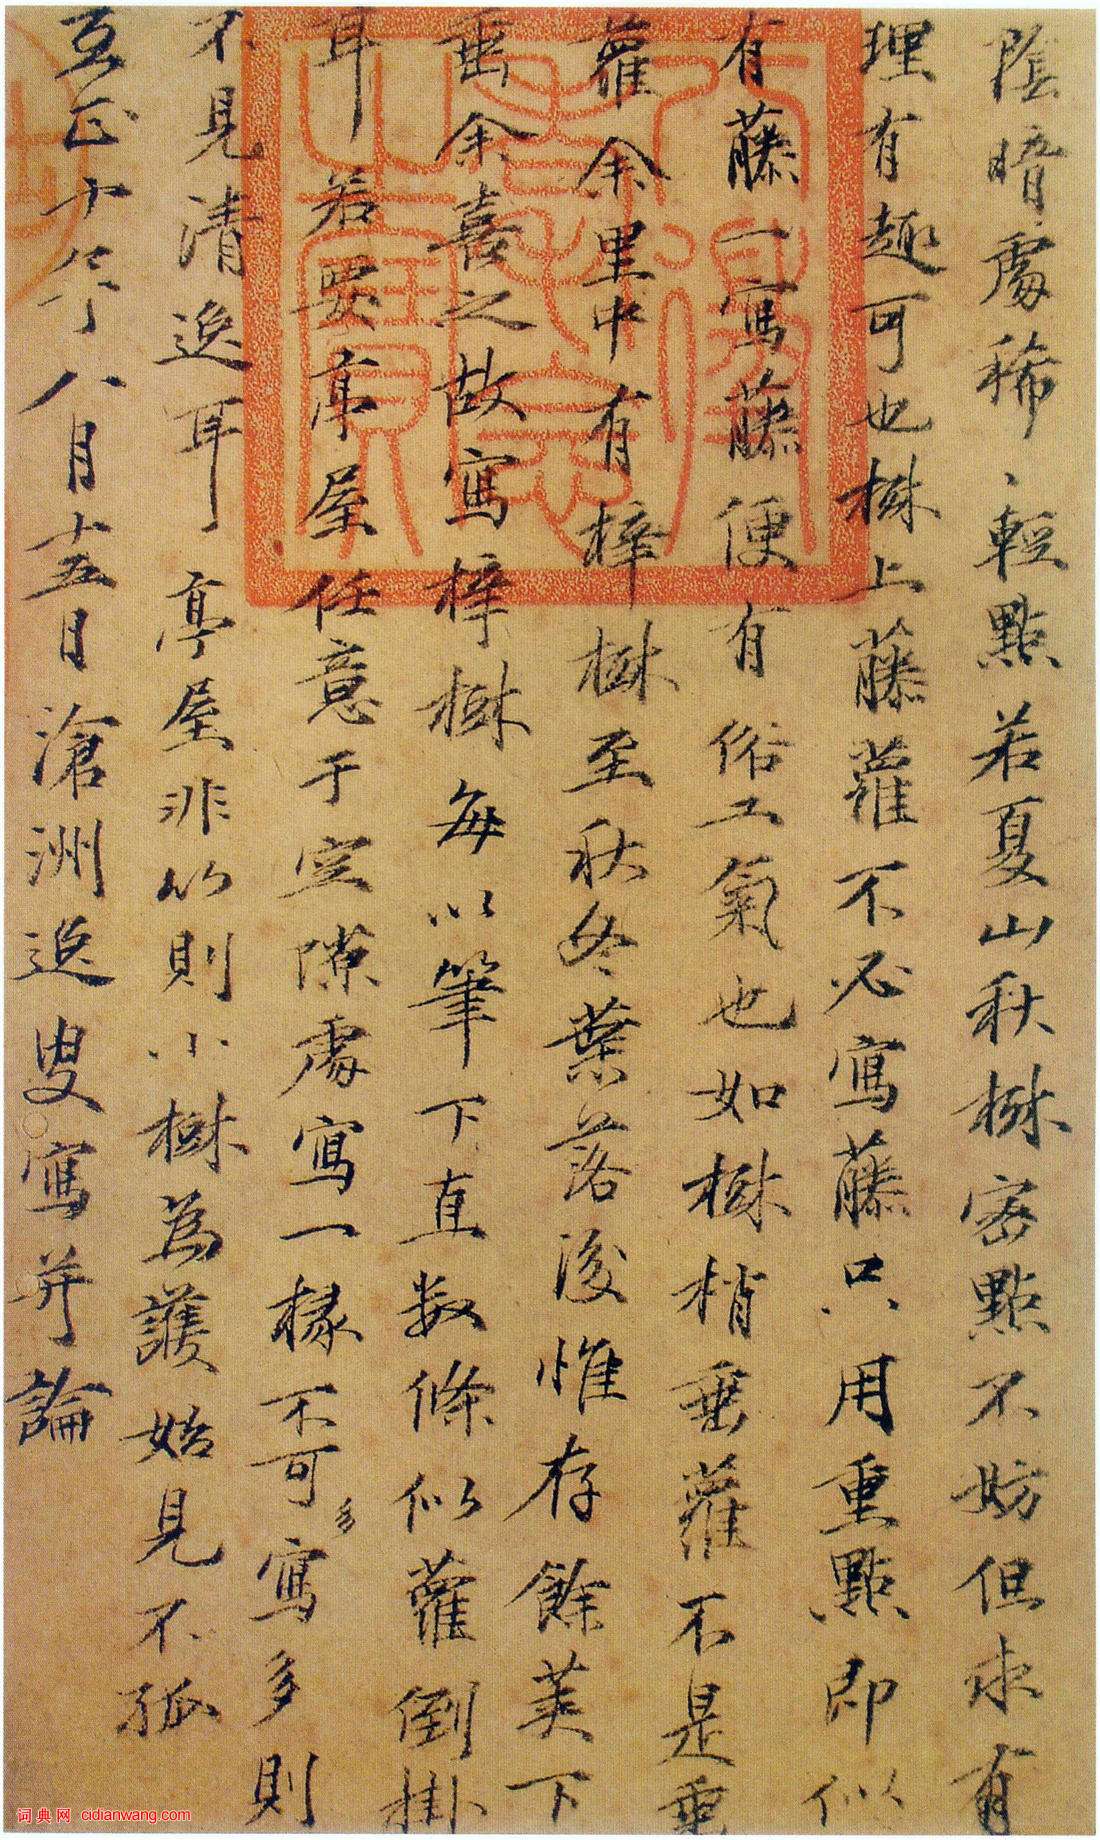 陰暗處稀、輕點若夏山秋樹密點不妨但求有
理有趣可也樹上藤蘿不必寫藤只用重點即似
有藤一寫藤便有俗工氣也如樹梢垂蘿不是垂
蘿余里中有梓樹至秋冬葉落後惟存餘莢下
垂余喜之故寫梓樹每以筆下直數條似蘿倒掛
耳若要亭屋任意于空隙處寫一椽不可多寫多則
不見清逸耳亭屋非以則小樹為護始見不孤
至正十年八月十五日滄洲逸叟寫并論
八徵耄念之寶
词典网 cidianwang.com